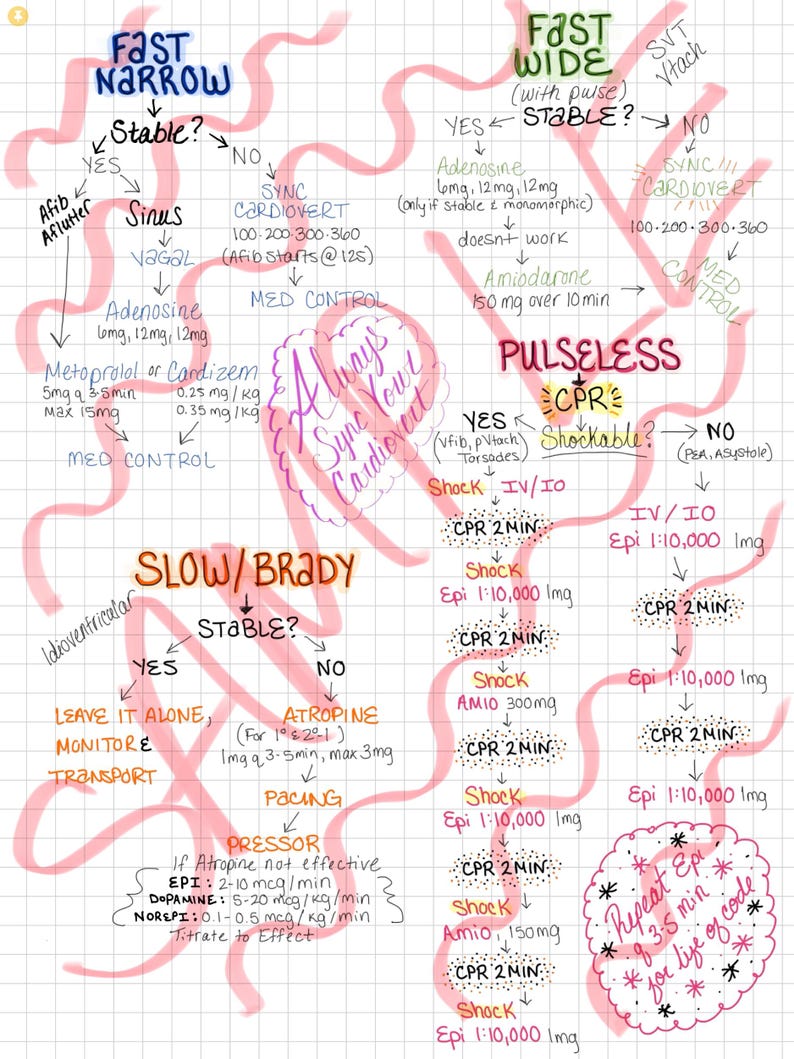 FAST
NARROW
Stable?
YES
NO
Afib
Aflutter
Sinus
VAGAL
Adenosine
6mg, 12mg, 12mg
Metoprolol or Cardizem
5mg q 3-5min 0.25 mg/kg
Max 15mg 0.35 mg/kg
MED CONTROL
SYNC
CARDIOVERT
100·200·300·360
(Afib starts @ 125)
MED CONTROL
Always
Sync Your
Cardiovert
FAST
WIDE
(with pulse)
SVT
Vtach
STABLE?
YES
NO
Adenosine
6mg, 12mg, 12mg
(only if stable & monomorphic)
doesnt work
Amiodarone
150 mg over 10min
SYNC
CARDIOVERT
100·200·300·360
MED
CONTROL
PULSELESS
CPR
Shockable?
YES
(Vfib, pVtach
Torsades)
NO
(PEA, Asystole)
Shock IV/IO
CPR 2MIN
Shock
Epi 1:10,000 1mg
CPR 2MIN
Shock
AMIO 300mg
CPR 2MIN
Shock
Epi 1:10,000 1mg
CPR 2MIN
Shock
Amio, 150mg
CPR 2MIN
Shock
Epi 1:10,000 1mg
IV/IO
Epi 1:10,000 1mg
CPR 2MIN
Epi 1:10,000 1mg
CPR 2MIN
Epi 1:10,000 1mg
Repeat Epi
q 3-5 min
for life of code
SLOW/BRADY
Idioventricular
STABLE?
YES
NO
LEAVE IT ALONE,
MONITOR &
TRANSPORT
ATROPINE
(For 1° & 2°-1)
1mg q 3-5min, max 3mg
PACING
PRESSOR
If Atropine not effective
EPI: 2-10 mcg/min
DOPAMINE: 5-20 mcg/kg/min
NOREPI: 0.1-0.5 mcg/kg/min
Titrate to Effect